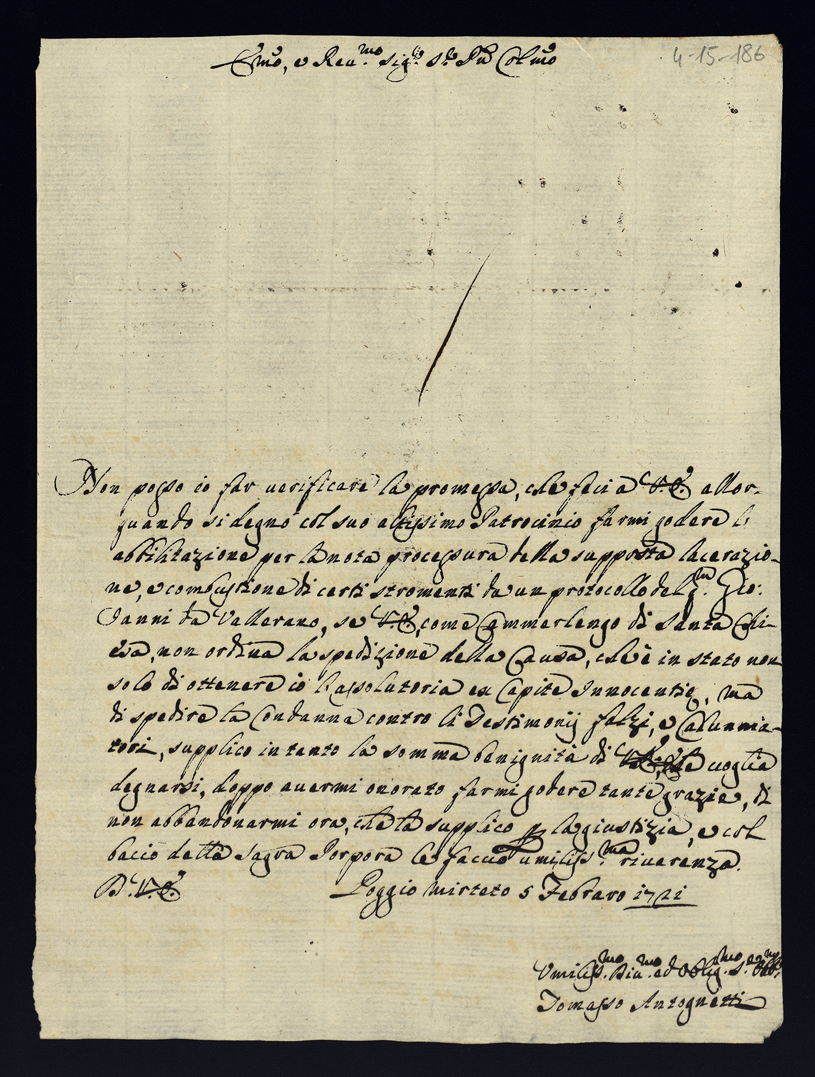 4-15-186
Em̃o, e Reu.mo Sig.r S.r Pñ Col mo
Non posso io far verificare la promessa, che feci a V.E. allor-
quando si degnò col suo altissimo Patrocinio farmi godere l'
abbilitazione per la nota processura della supposta lacerazio-
ne, e combustione di certi stromenti da un protocollo del q.m Gio:
Vanni da Vallerano, se V.E., come Cammerlengo di Santa Chi-
esa, non ordina la spedizione della Causa, ch'è in stato non
solo di ottenere io l'assolutoria ex Capite Innocentie, ma
di spedire la Condanna contro li Testimonij falzi, e Calunnia-
tori, supplico in tanto la somma benignità di V.E., che voglia
degnarsi, doppo avermi onorato farmi godere tante grazie, di
non abbandonarmi ora, che la supplico p la giustizia, e col
bacio della Sagra Porpora le faccio umiliss.ma riverenza.
D. V.E. Poggio Mirteto 5 Febraro 1721
Umiliss.mo Diu.mo ed Oblig.mo S.re
Tomasso Antognetti